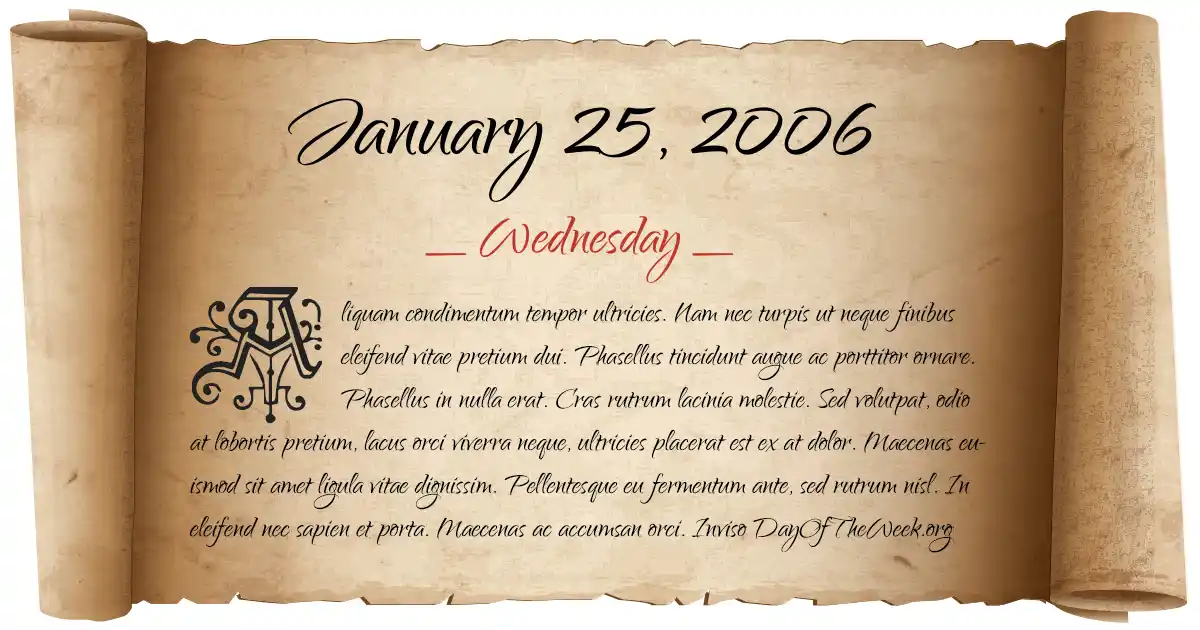 January 25, 2006
Wednesday
Aliquam condimentum tempor ultricies. Nam nec turpis ut neque finibus
eleifend vitae pretium dui. Phasellus tincidunt augue ac porttitor ornare.
Phasellus in nulla erat. Cras rutrum lacinia molestie. Sed volutpat, odio
at lobortis pretium, lacus orci viverra neque, ultricies placerat est ex at dolor. Maecenas eu-
ismod sit amet ligula vitae dignissim. Pellentesque eu fermentum ante, sed rutrum nisl. In
eleifend nec sapien et porta. Maecenas ac accumsan orci. Inviso DayOfTheWeek.org